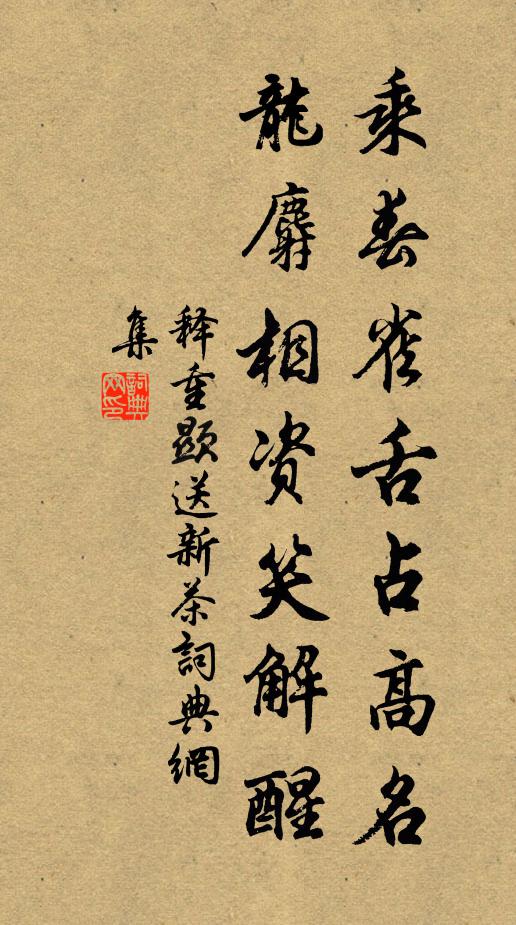 乘春雀舌占高名
龍麝相资笑解醒
释重顯送新茶詞典網
集
詞典
网印